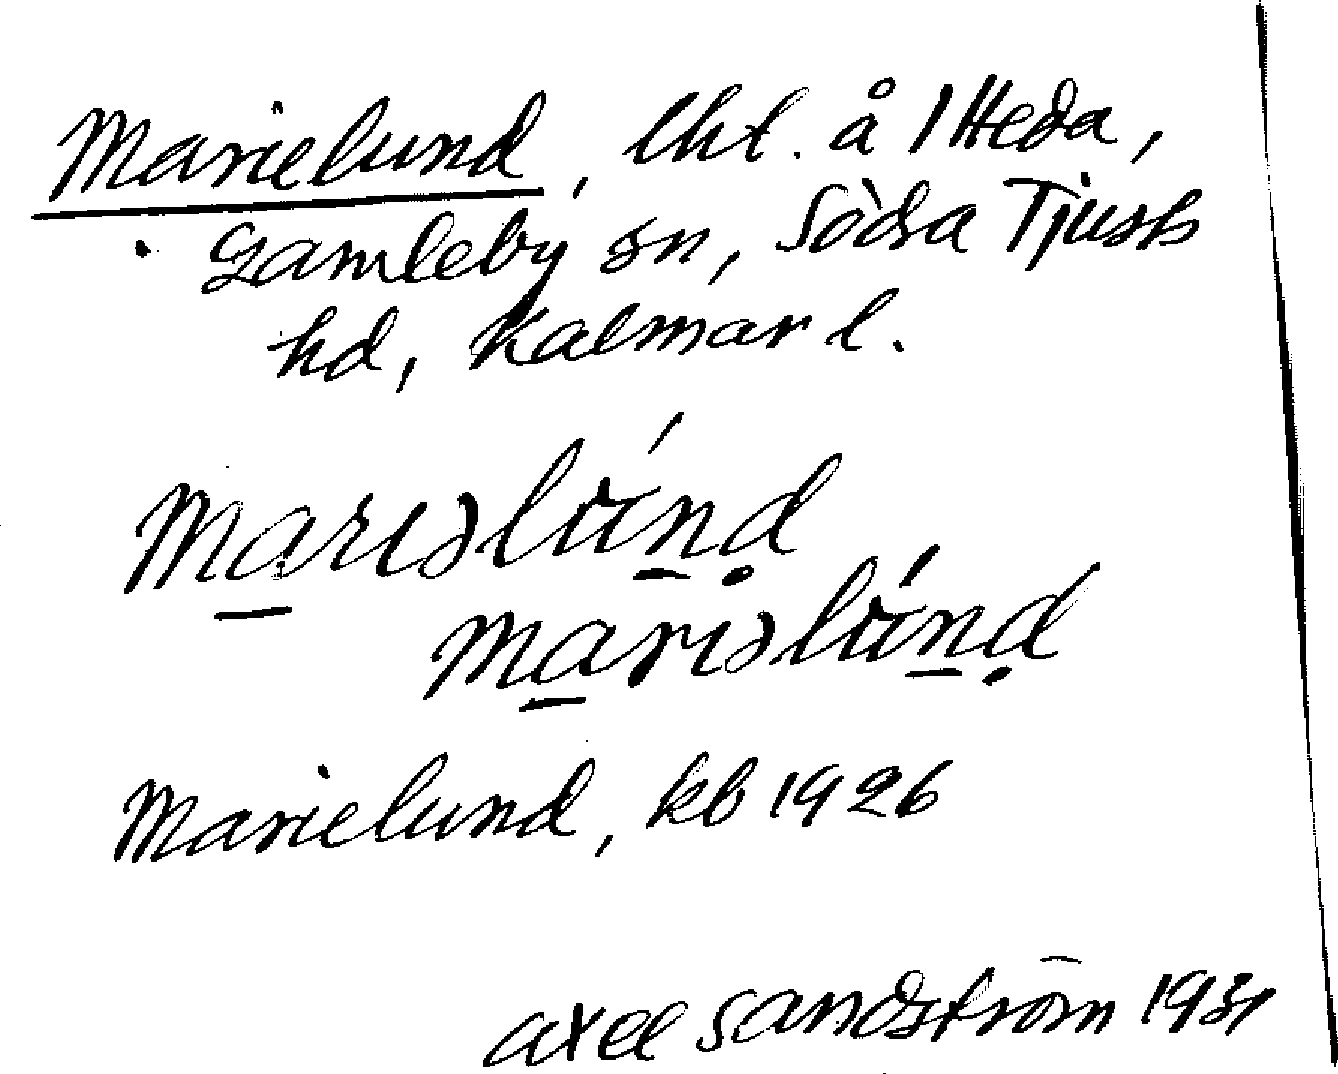 Marielund, lht. å 1 Heda,
Gamleby sn, Södra Tjusts
hd, Kalmar l.
marıəlúnd
marıəlúnd
Marielund, kb 1926
Axel Sandström 1931